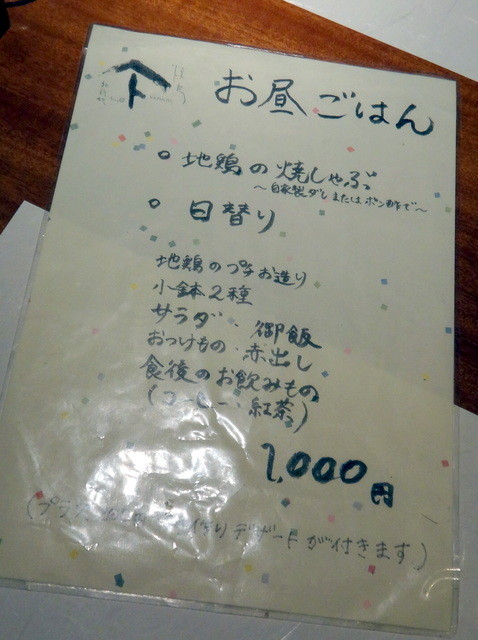 お昼ごはん
地鶏の焼しゃぶ
〜自家製ダレまたはポン酢で〜
日替り
地鶏のプチお造り
小鉢2種
サラダ、御飯
おつけもの、赤出し
食後のお飲みもの
(コーヒー、紅茶)
1,000円
デザートが付きます)